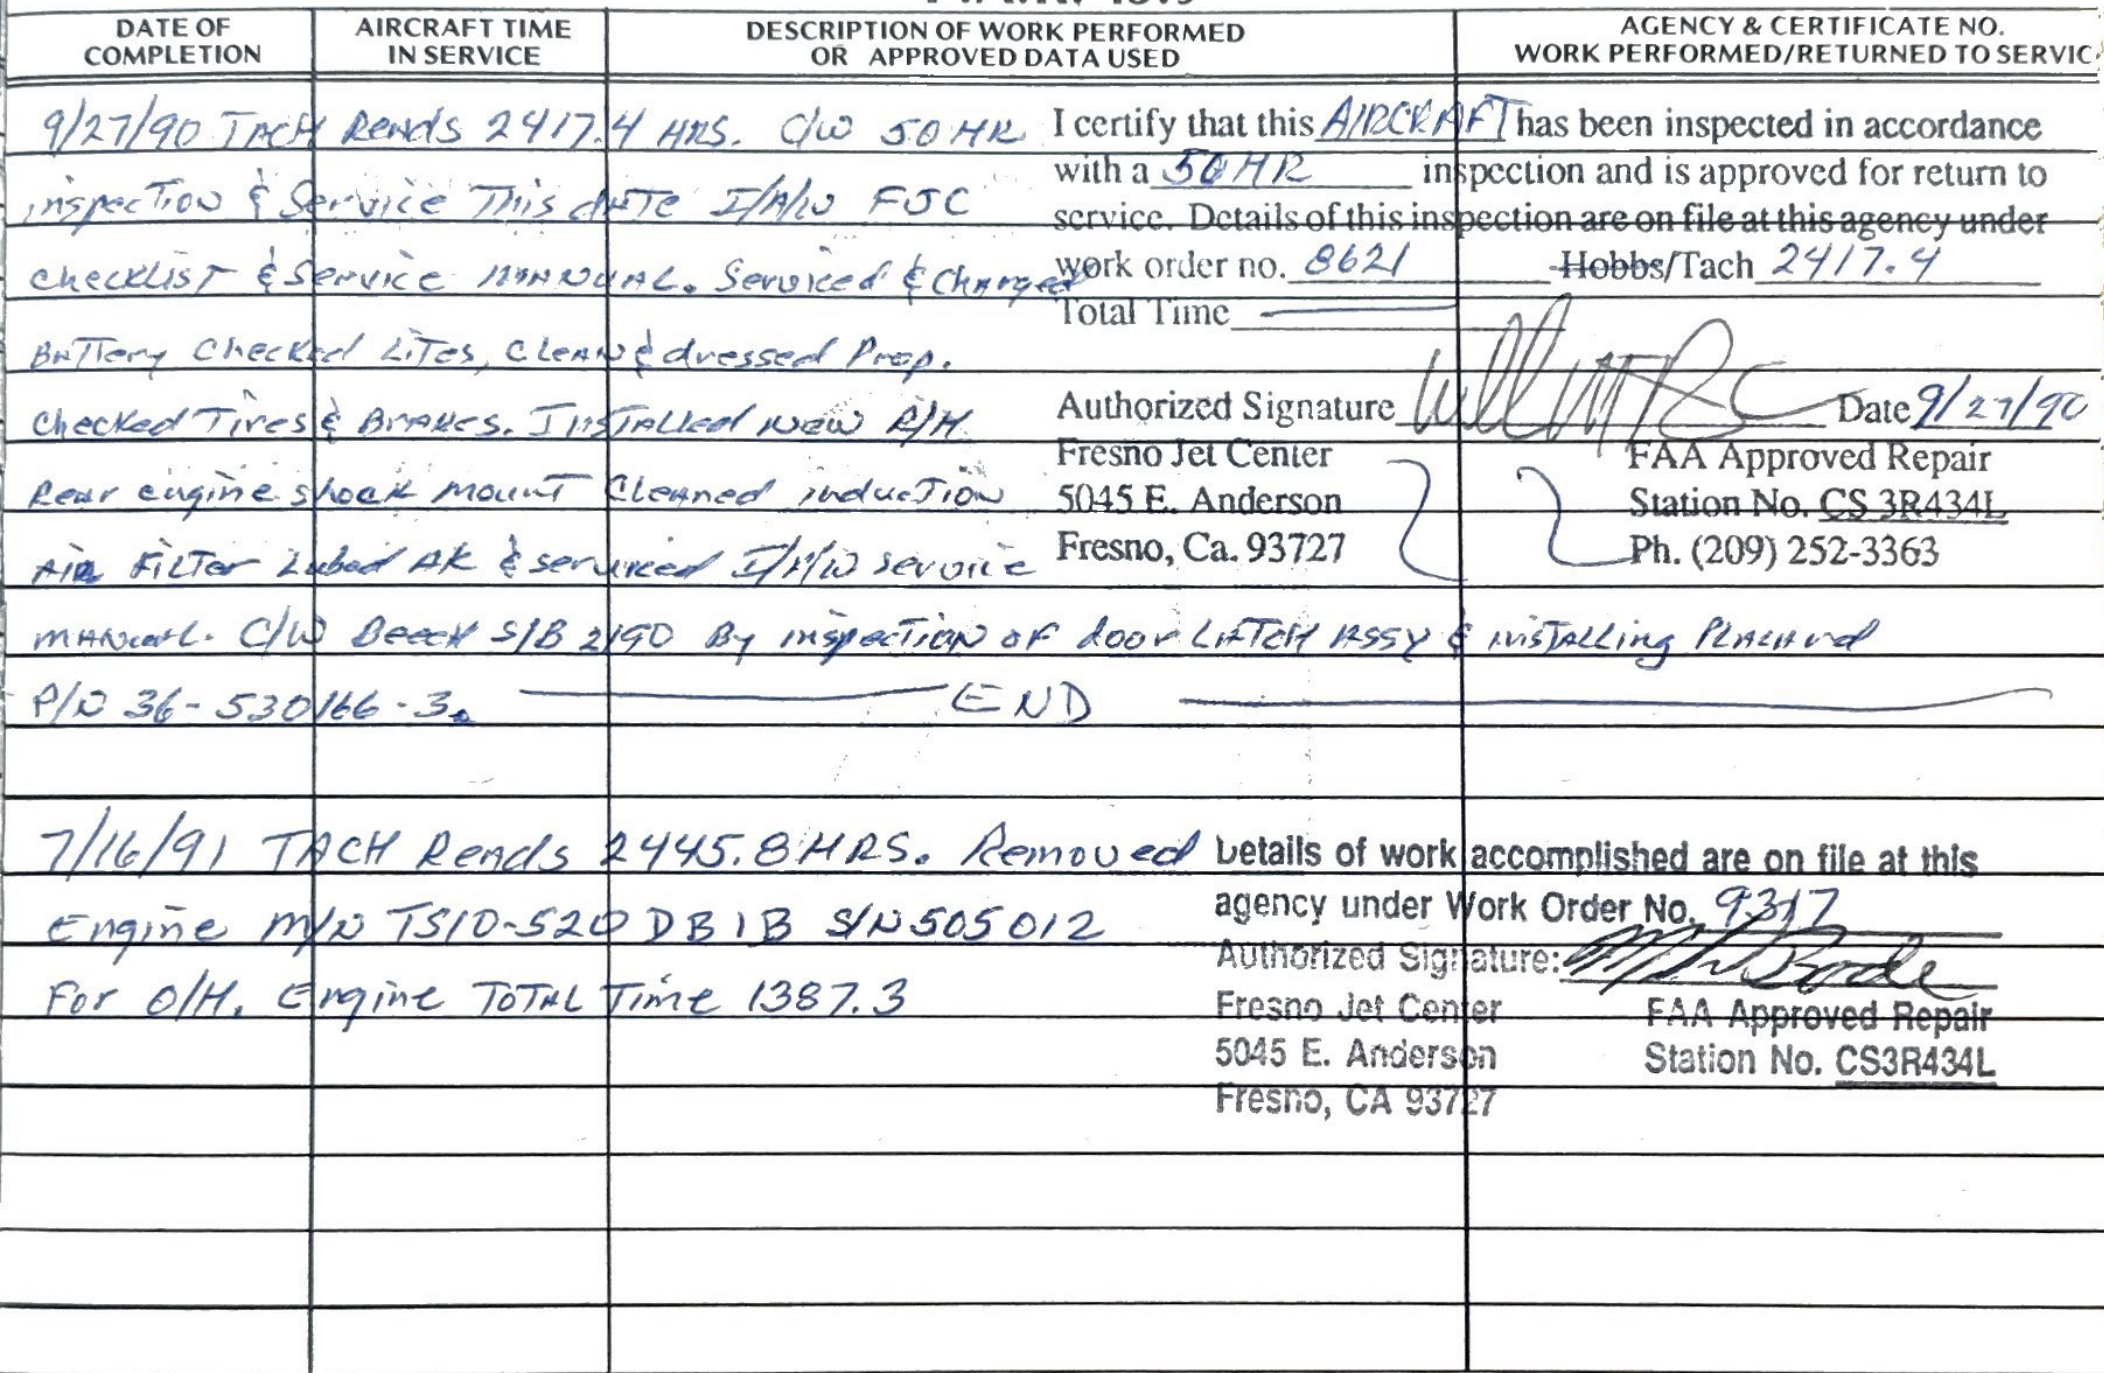 DATE OF COMPLETION
AIRCRAFT TIME IN SERVICE
DESCRIPTION OF WORK PERFORMED OR APPROVED DATA USED
AGENCY & CERTIFICATE NO. WORK PERFORMED/RETURNED TO SERVIC
9/27/90 TACH Reads 2417.4 HRS. C/W 50 HR
inspection & Service This date I/A/W FJC
checklist & Service MANUAL. Serviced & Charged
Battery Checked Lites, Clean & dressed Prop.
Checked Tires & Brakes. Installed new R/H
Rear engine shock mount Cleaned induction
Air Filter Lubed AK & serviced I/A/W service
manual. C/W Beech S/B 2190 By inspection of door LATCH ASSY & installing Placard
P/N 36-530166-3. END
I certify that this AIRCRAFT has been inspected in accordance
with a 50 HR inspection and is approved for return to
service. Details of this inspection are on file at this agency under
work order no. 8621 Hobbs/Tach 2417.4
Total Time
Authorized Signature Date 9/27/90
Fresno Jet Center FAA Approved Repair
5045 E. Anderson Station No. CS 3R434L
Fresno, Ca. 93727 Ph. (209) 252-3363
7/16/91 TACH Reads 2445.8 HRS. Removed
Engine M/N TSIO-520 DB1B S/N 505012
For O/H. Engine TOTAL Time 1387.3
Details of work accomplished are on file at this
agency under Work Order No. 9317
Authorized Signature:
Fresno Jet Center FAA Approved Repair
5045 E. Anderson Station No. CS3R434L
Fresno, CA 93727